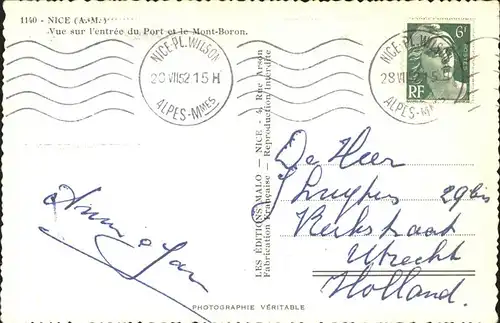 1140 - NICE (A.-M.)
Vue sur l'entrée du Port et le Mont-Boron.
NICE-PL. WILSON
20 VII 52 15 H
ALPES-MMES
NICE-PL. WILSON
15 H
ALPES-M
6F
RF
LES ÉDITIONS MALO — NICE - 4, Rue Arson
Fabrication Française — Reproduction Interdite
De Heer
29bis
Kerkstraat
Utrecht
Holland.
PHOTOGRAPHIE VÉRITABLE